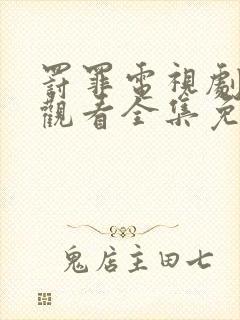 罰罪電視劇
觀看全集免
鬼店主田七